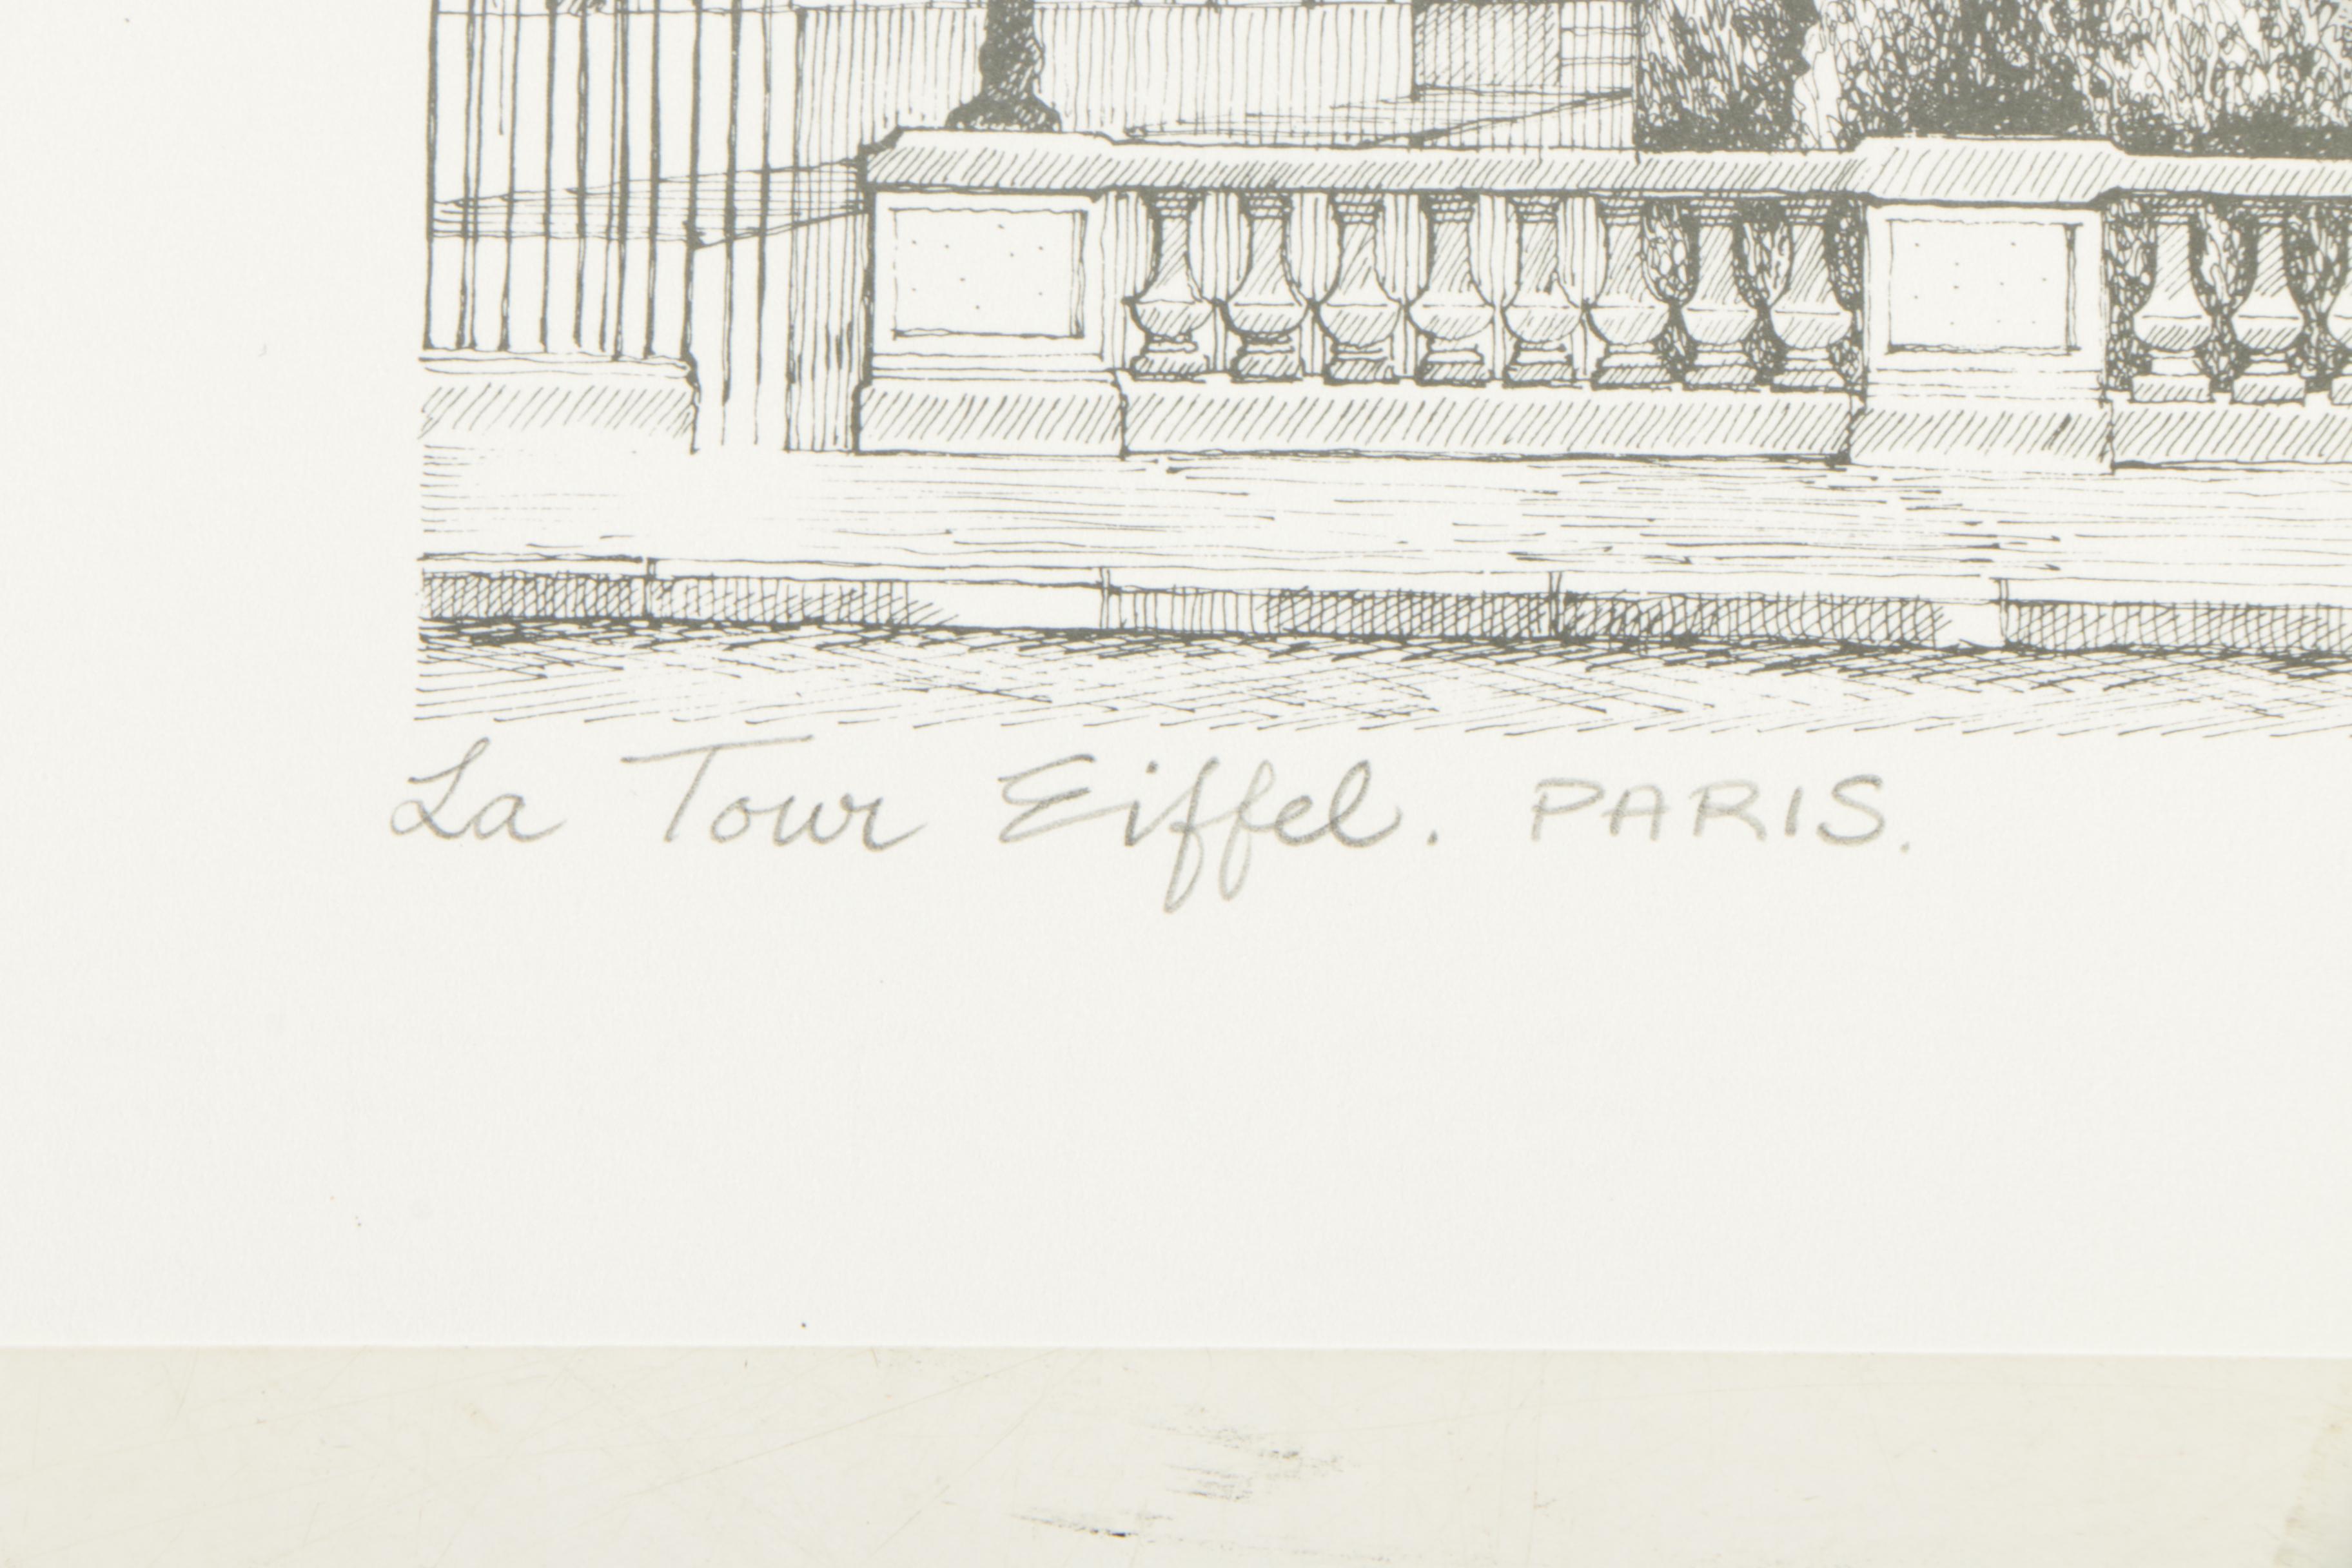 La Tour Eiffel. PARIS.